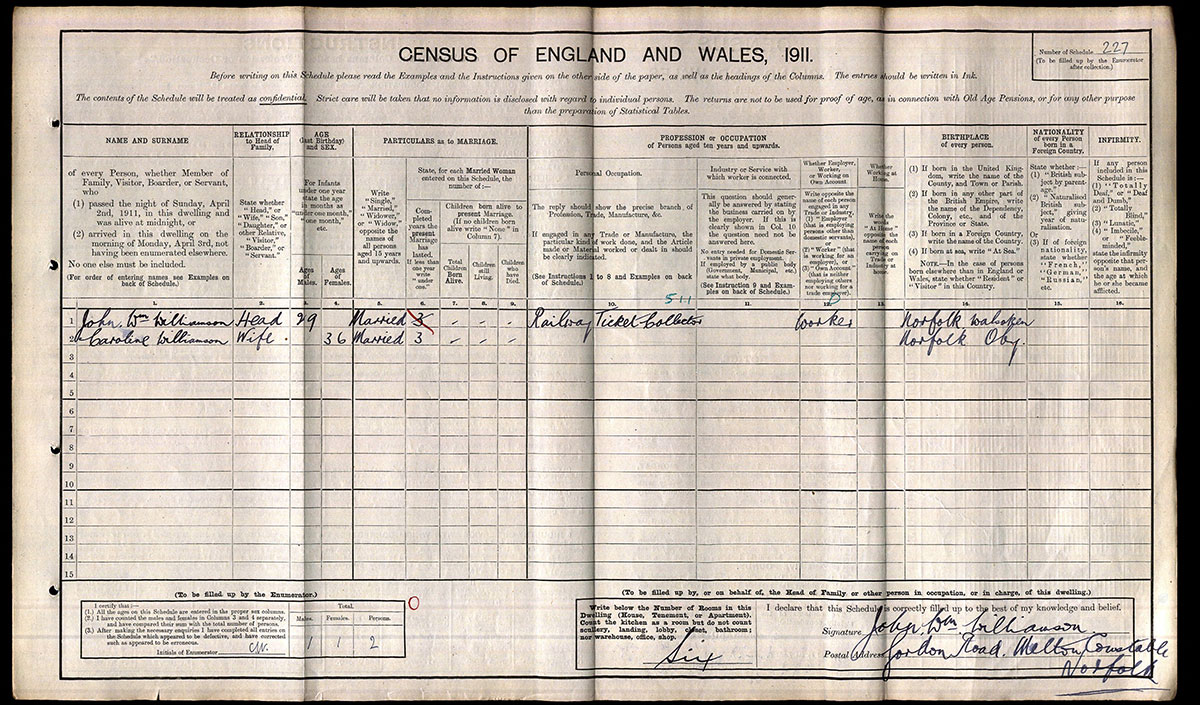 CENSUS OF ENGLAND AND WALES, 1911.
Number of Schedule 227
(To be filled up by the Enumerator
after collection.)
Before writing on this Schedule please read the Examples and the Instructions given on the other side of the paper, as well as the headings of the Columns. The entries should be written in Ink.
The contents of the Schedule will be treated as confidential. Strict care will be taken that no information is disclosed with regard to individual persons. The returns are not to be used for proof of age, as in connection with Old Age Pensions, or for any other purpose
than the preparation of Statistical Tables.
NAME AND SURNAME
of every Person, whether Member of
Family, Visitor, Boarder, or Servant,
who
(1) passed the night of Sunday, April
2nd, 1911, in this dwelling and
was alive at midnight, or
(2) arrived in this dwelling on the
morning of Monday, April 3rd, not
having been enumerated elsewhere.
No one else must be included.
(For order of entering names see Examples on
back of Schedule.)
RELATIONSHIP
to Head of
Family.
State whether
"Head," or
"Wife," "Son,"
"Daughter," or
other Relative,
"Visitor,"
"Boarder," or
"Servant."
AGE
(last Birthday)
and SEX.
For Infants
under one year
state the age
in months as
"under one month,"
"one month,"
etc.
Ages
of
Males.
Ages
of
Females.
PARTICULARS as to MARRIAGE.
Write
"Single,"
"Married,"
"Widower,"
or "Widow,"
opposite the
names of
all persons
aged 15 years
and upwards.
State, for each Married Woman
entered on this Schedule, the
number of:—
Com-
pleted
years the
present
Marriage
has
lasted.
If less than
one year
write
"under
one."
Children born alive to
present Marriage.
(If no children born
alive write "None" in
Column 7).
Total
Children
Born
Alive.
Children
still
Living.
Children
who
have
Died.
PROFESSION or OCCUPATION
of Persons aged ten years and upwards.
Personal Occupation.
The reply should show the precise branch of
Profession, Trade, Manufacture, &c.
If engaged in any Trade or Manufacture, the
particular kind of work done, and the Article
made or Material worked or dealt in should
be clearly indicated.
(See Instructions 1 to 8 and Examples on back
of Schedule.)
Industry or Service with
which worker is connected.
This question should gener-
ally be answered by stating
the business carried on by
the employer. If this is
clearly shown in Col. 10
the question need not be
answered here.
No entry needed for Domestic Ser-
vants in private employment.
If employed by a public body
(Government, Municipal, etc.)
state what body.
(See Instruction 9 and Exam-
ples on back of Schedule.)
Whether Employer,
Worker,
or Working on
Own Account
Write opposite the
name of each person
engaged in any
Trade or Industry,
(1) "Employer"
(that is employing
persons other than
domestic servants),
or
(2) "Worker" (that
is working for an
employer), or
(3) "Own Account"
(that is neither
employing others
nor working for a
trade employer).
Whether
Working at
Home.
Write the
words
"At Home"
opposite the
name of each
person
carrying on
Trade or
Industry at
home.
BIRTHPLACE
of every person.
(1) If born in the United King-
dom, write the name of the
County, and Town or Parish.
(2) If born in any other part of
the British Empire, write
the name of the Dependency,
Colony, etc., and of the
Province or State.
(3) If born in a Foreign Country,
write the name of the Country.
(4) If born at sea, write "At Sea."
NOTE.—In the case of persons
born elsewhere than in England or
Wales, state whether "Resident" or
"Visitor" in this Country.
NATIONALITY
of every Person
born in a
Foreign Country.
State whether:—
(1) "British sub-
ject by parent-
age,"
(2) "Naturalised
British sub-
ject," giving
year of natu-
ralisation.
Or
(3) If of foreign
nationality,
state whether
"French,"
"German,"
"Russian,"
etc.
INFIRMITY.
If any person
included in this
Schedule is:—
(1) "Totally
Deaf," or "Deaf
and Dumb,"
(2) "Totally
Blind,"
(3) "Lunatic,"
(4) "Imbecile,"
or "Feeble-
minded,"
state the infirmity
opposite that per-
son's name, and
the age at which
he or she became
afflicted.
1. 2. 3. 4. 5. 6. 7. 8. 9. 10. 511 11. 12. 13. 14. 15. 16.
1 John Wm Williamson Head 29 Married 3 - - - Railway Ticket Collector Worker Norfolk Walsoken
2 Caroline Williamson Wife. 36 Married 3 - - - Norfolk Oby.
3
4
5
6
7
8
9
10
11
12
13
14
15
(To be filled up by the Enumerator.)
I certify that:—
(1.) All the ages on this Schedule are entered in the proper sex columns.
(2.) I have counted the males and females in Columns 3 and 4 separately,
and have compared their sum with the total number of persons.
(3.) After making the necessary enquiries I have completed all entries on
the Schedule which appeared to be defective, and have corrected
such as appeared to be erroneous.
Initials of Enumerator
Total.
Males. Females. Persons.
1 1 2
0
(To be filled up by, or on behalf of, the Head of Family or other person in occupation, or in charge, of this dwelling.)
Write below the Number of Rooms in this
Dwelling (House, Tenement, or Apartment).
Count the kitchen as a room but do not count
scullery, landing, lobby, closet, bathroom;
nor warehouse, office, shop.
Six
I declare that this Schedule is correctly filled up to the best of my knowledge and belief.
Signature John. Wm. Williamson
Postal Address Gordon Road. Melton Constable
Norfolk